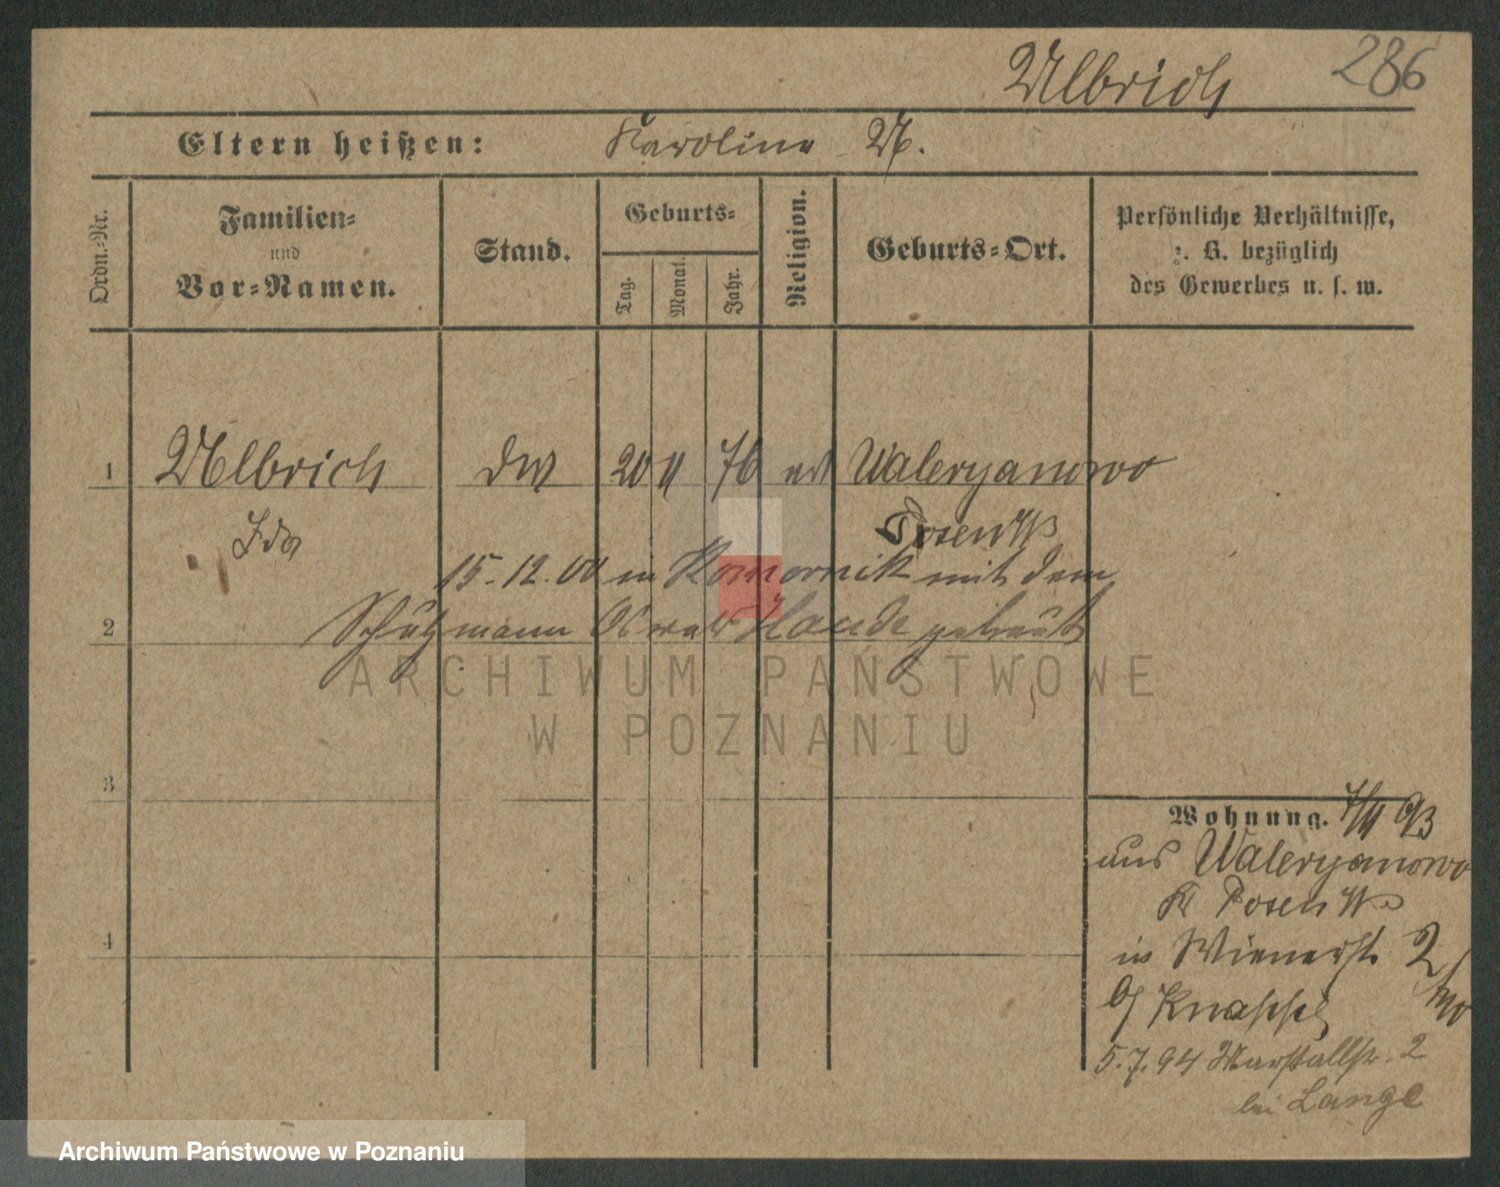 Ulbrich 286
Eltern heißen: Karoline U.
Ordn.-Nr.
Familien-
und
Vor-Namen.
Stand.
Geburts-
Tag.
Monat.
Jahr.
Religion.
Geburts-Ort.
Persönliche Verhältnisse,
z. B. bezüglich
des Gewerbes u. s. w.
1 Ulbrich 20 11 76 Waleryanowo
Ida Posen W
15.12.00 in Komornik mit dem
2 Schutzmann Oswald getraut
3
4
Wohnung. 7/11 93
aus Waleryanowo
Kr Posen W
in Wienerst. 2
b/ Knappe
5.7.94 Marstallstr. 2
bei Lange
ARCHIWUM PAŃSTWOWE
W POZNANIU
Archiwum Państwowe w Poznaniu